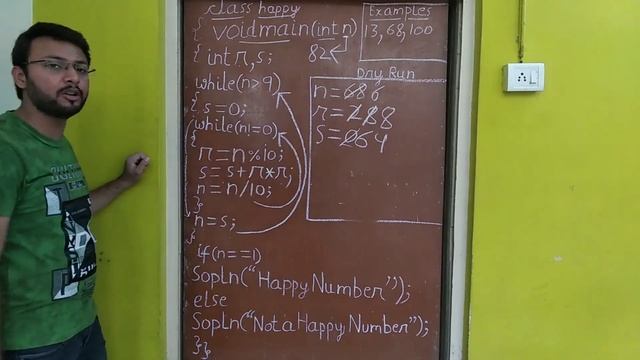 class happy
{ void main(int n)
{ int r, s;
82
while(n>9)
{ s=0;
while(n!=0)
{
r=n%10;
s=s+r*r;
n=n/10;
}
n=s;
}
if(n==1)
Sopln("Happy Number");
else
Sopln("Not a Happy Number");
}}
Examples
13, 68, 100
Dry Run
n=
r=
s=